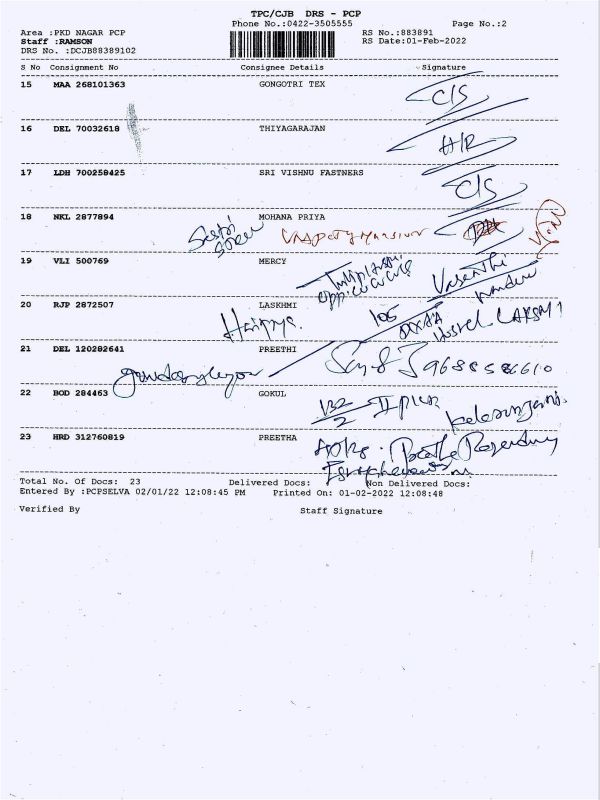 TPC/CJB DRS - PCP
Phone No.:0422-3505555 Page No.:2
Area :PKD NAGAR PCP RS No.:883891
Staff :RAMSON RS Date:01-Feb-2022
DRS No. :DCJB88389102
S No Consignment No Consignee Details Signature
15 MAA 268101363 GONGOTRI TEX
C/S
16 DEL 70032618 THIYAGARAJAN
H/R
17 LDH 700258425 SRI VISHNU FASTNERS
C/S
18 NKL 2877894 MOHANA PRIYA
19 VLI 500769 MERCY
Vasanthi
20 RJP 2872507 LASKHMI
105
Hostel LAKSMI
21 DEL 120282641 PREETHI
9688586610
22 BOD 284463 GOKUL
23 HRD 312760819 PREETHA
Total No. Of Docs: 23 Delivered Docs: Non Delivered Docs:
Entered By :PCPSELVA 02/01/22 12:08:45 PM Printed On: 01-02-2022 12:08:48
Verified By Staff Signature